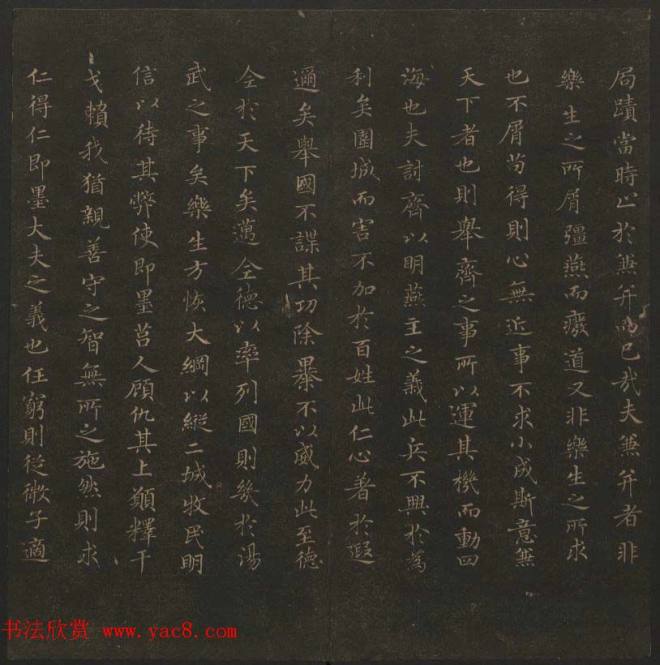 局蹟當時止於兼并而已哉夫兼并者非
樂生之所屑彊燕而癈道又非樂生之所求
也不屑茍得則心無近事不求小成斯意無
天下者也則舉齊之事所以運其機而動四
海也夫討齊以明燕主之義此兵不興於為
利矣圍城而害不加於百姓此仁心著於遐
邇矣舉國不謀其功除暴不以威力此至德
全於天下矣邁全德以率列國則幾於湯
武之事矣樂生方恢大綱以縱二城牧民明
信以待其弊使即墨莒人顧仇其上願釋干
戈賴我猶親善守之智無所之施然則求
仁得仁即墨大夫之義也任窮則從微子適
书法欣赏 www.yac8.com